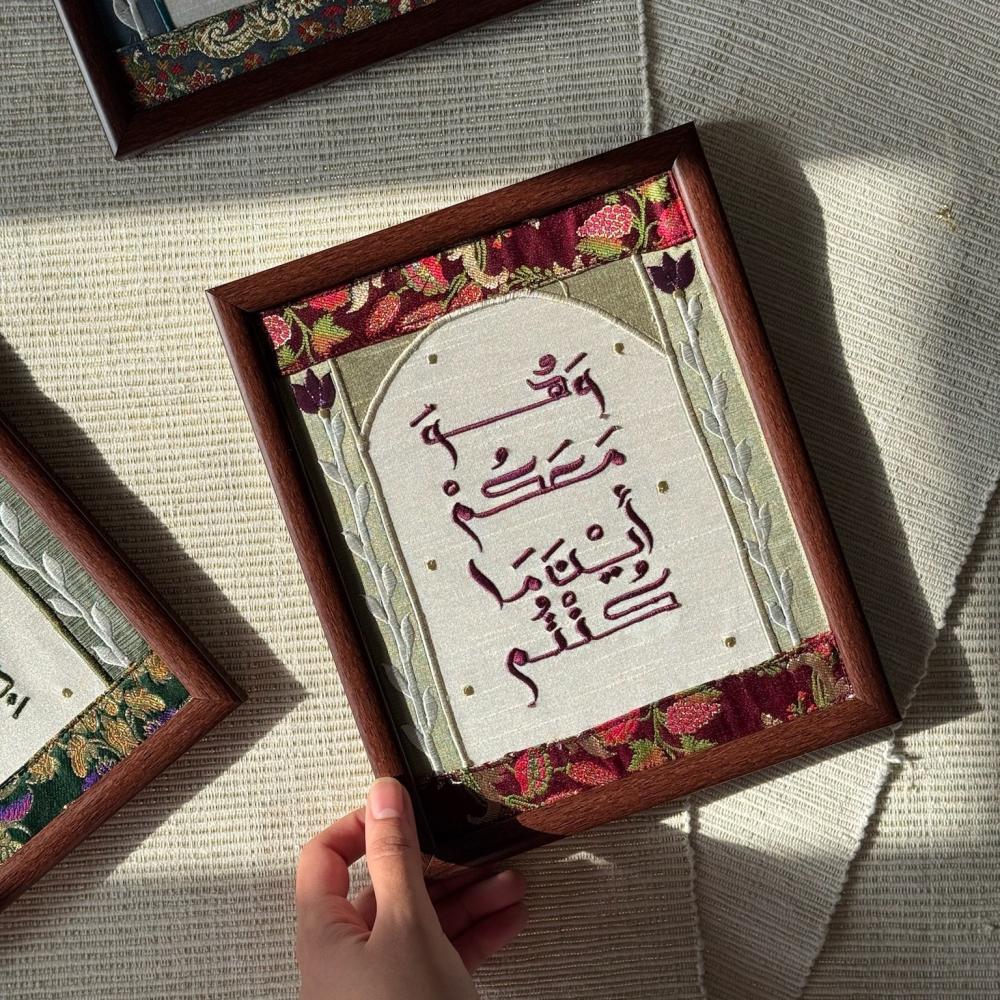 وَهُوَ
مَعَكُمْ
أَيْنَمَا
كُنْتُمْ